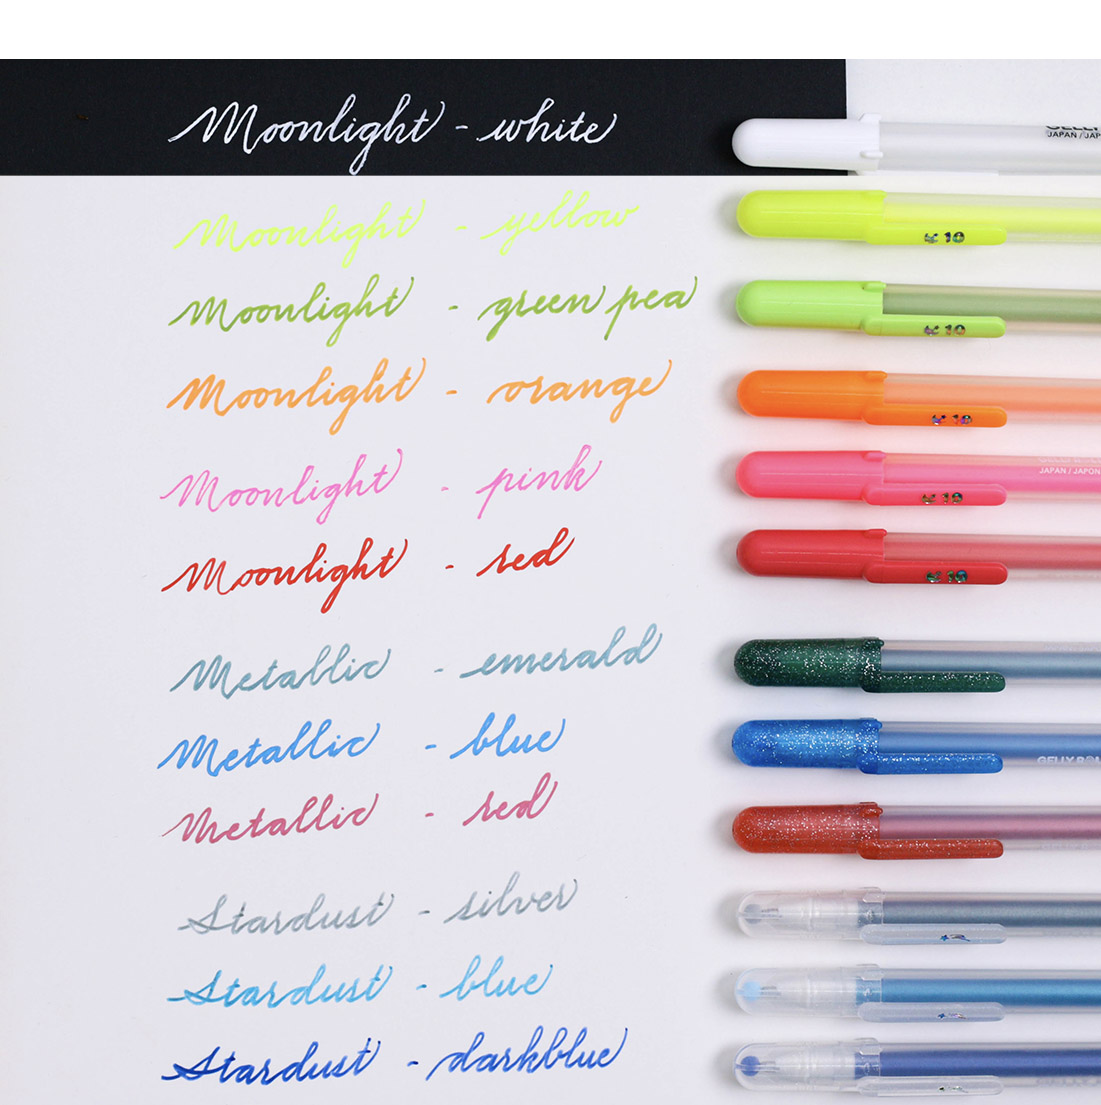 Moonlight - white
JAPAN / JAP
Moonlight - yellow
10
Moonlight - green pea
10
Moonlight - orange
10
Moonlight - pink
JAPAN / JAPON
10
Moonlight - red
10
Metallic - emerald
Metallic - blue
GELLY RO
Metallic - red
Stardust - silver
Stardust - blue
Stardust - darkblue